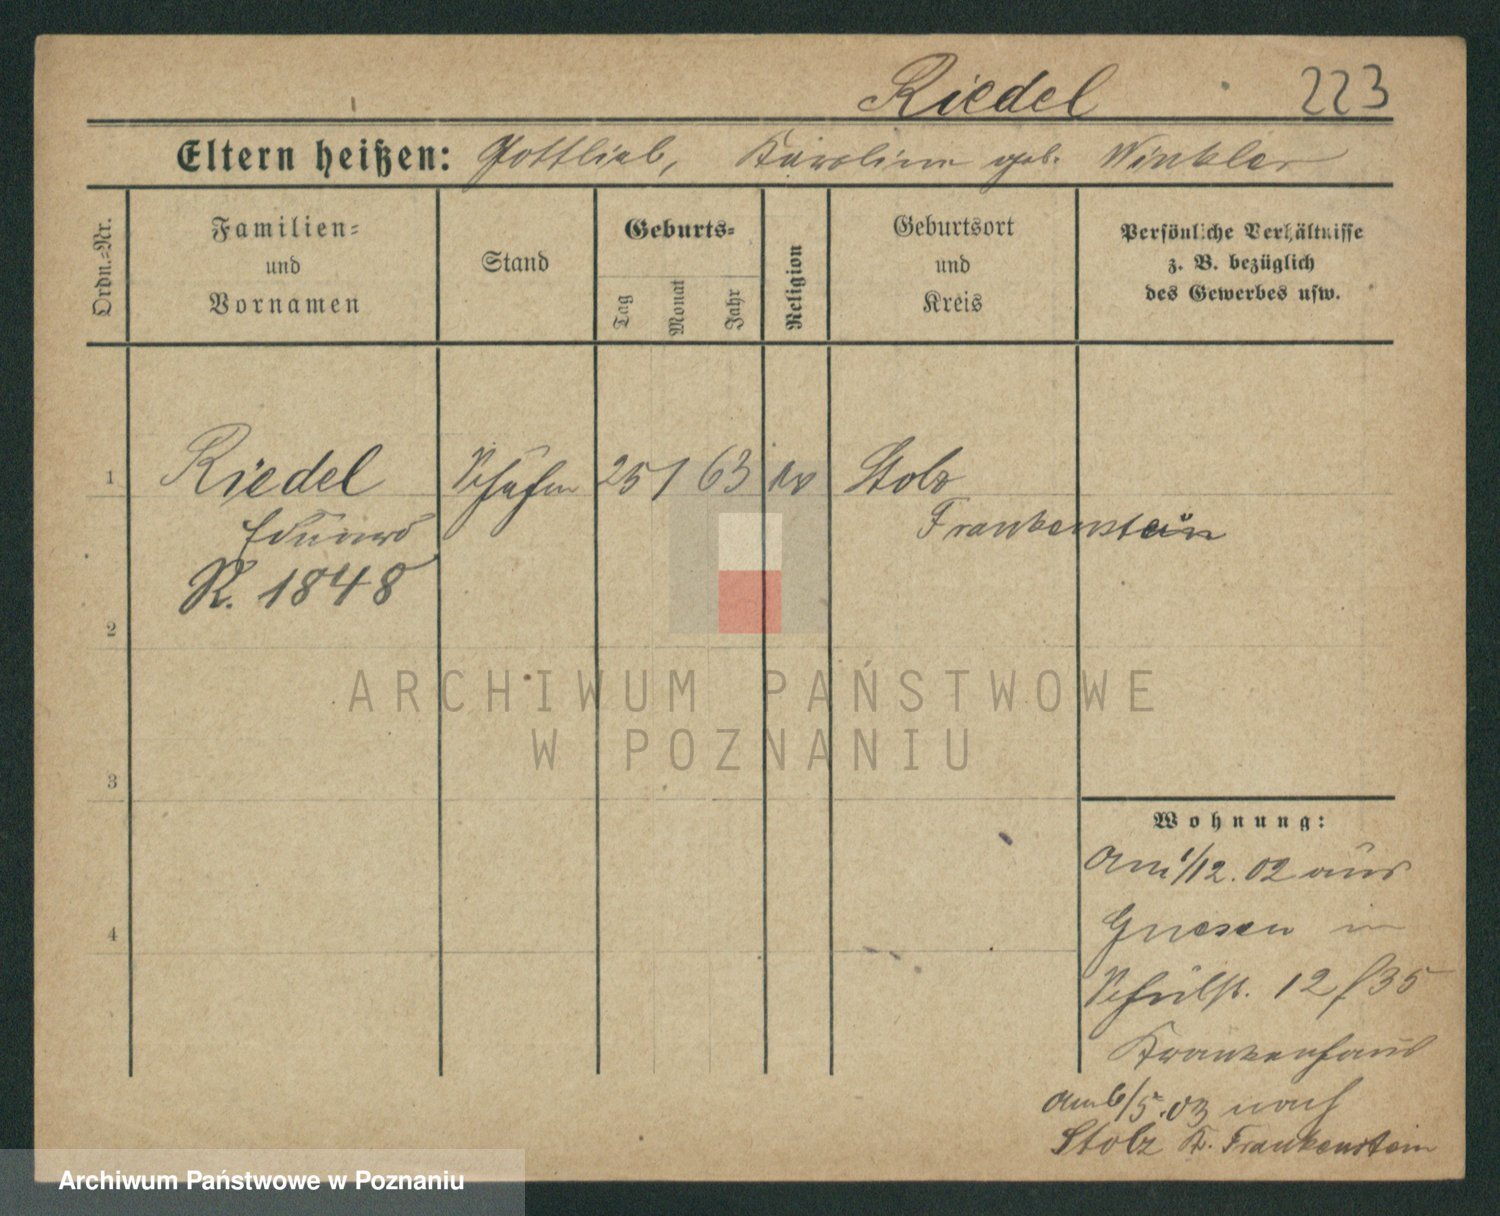 Riedel 223
Eltern heißen: Gottlieb, Karoline geb. Winkler
Ordn.-Nr.
Familien-
und
Vornamen
Stand
Geburts-
Tag
Monat
Jahr
Religion
Geburtsort
und
Kreis
Persönliche Verhältnisse
z. B. bezüglich
des Gewerbes usw.
1 Riedel 25 1 63 ev Stolz
Eduard Frankenstein
R. 1848
2
ARCHIWUM PAŃSTWOWE
W POZNANIU
3
Wohnung:
am 1/12. 02 aus
4 Gnesen in
Schulst. 12/35
Krankenhaus
am 6/5.03 nach
Stolz K. Frankenstein
Archiwum Państwowe w Poznaniu